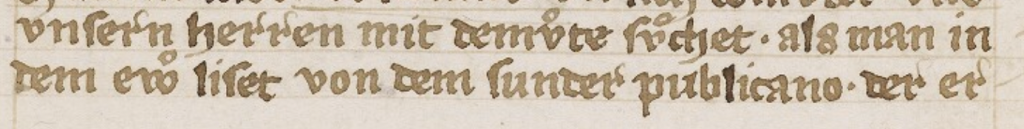 vnsern herren mit demvͦte svͦchet · als man in
dem ewͦ liset von dem sunder publicano · der er